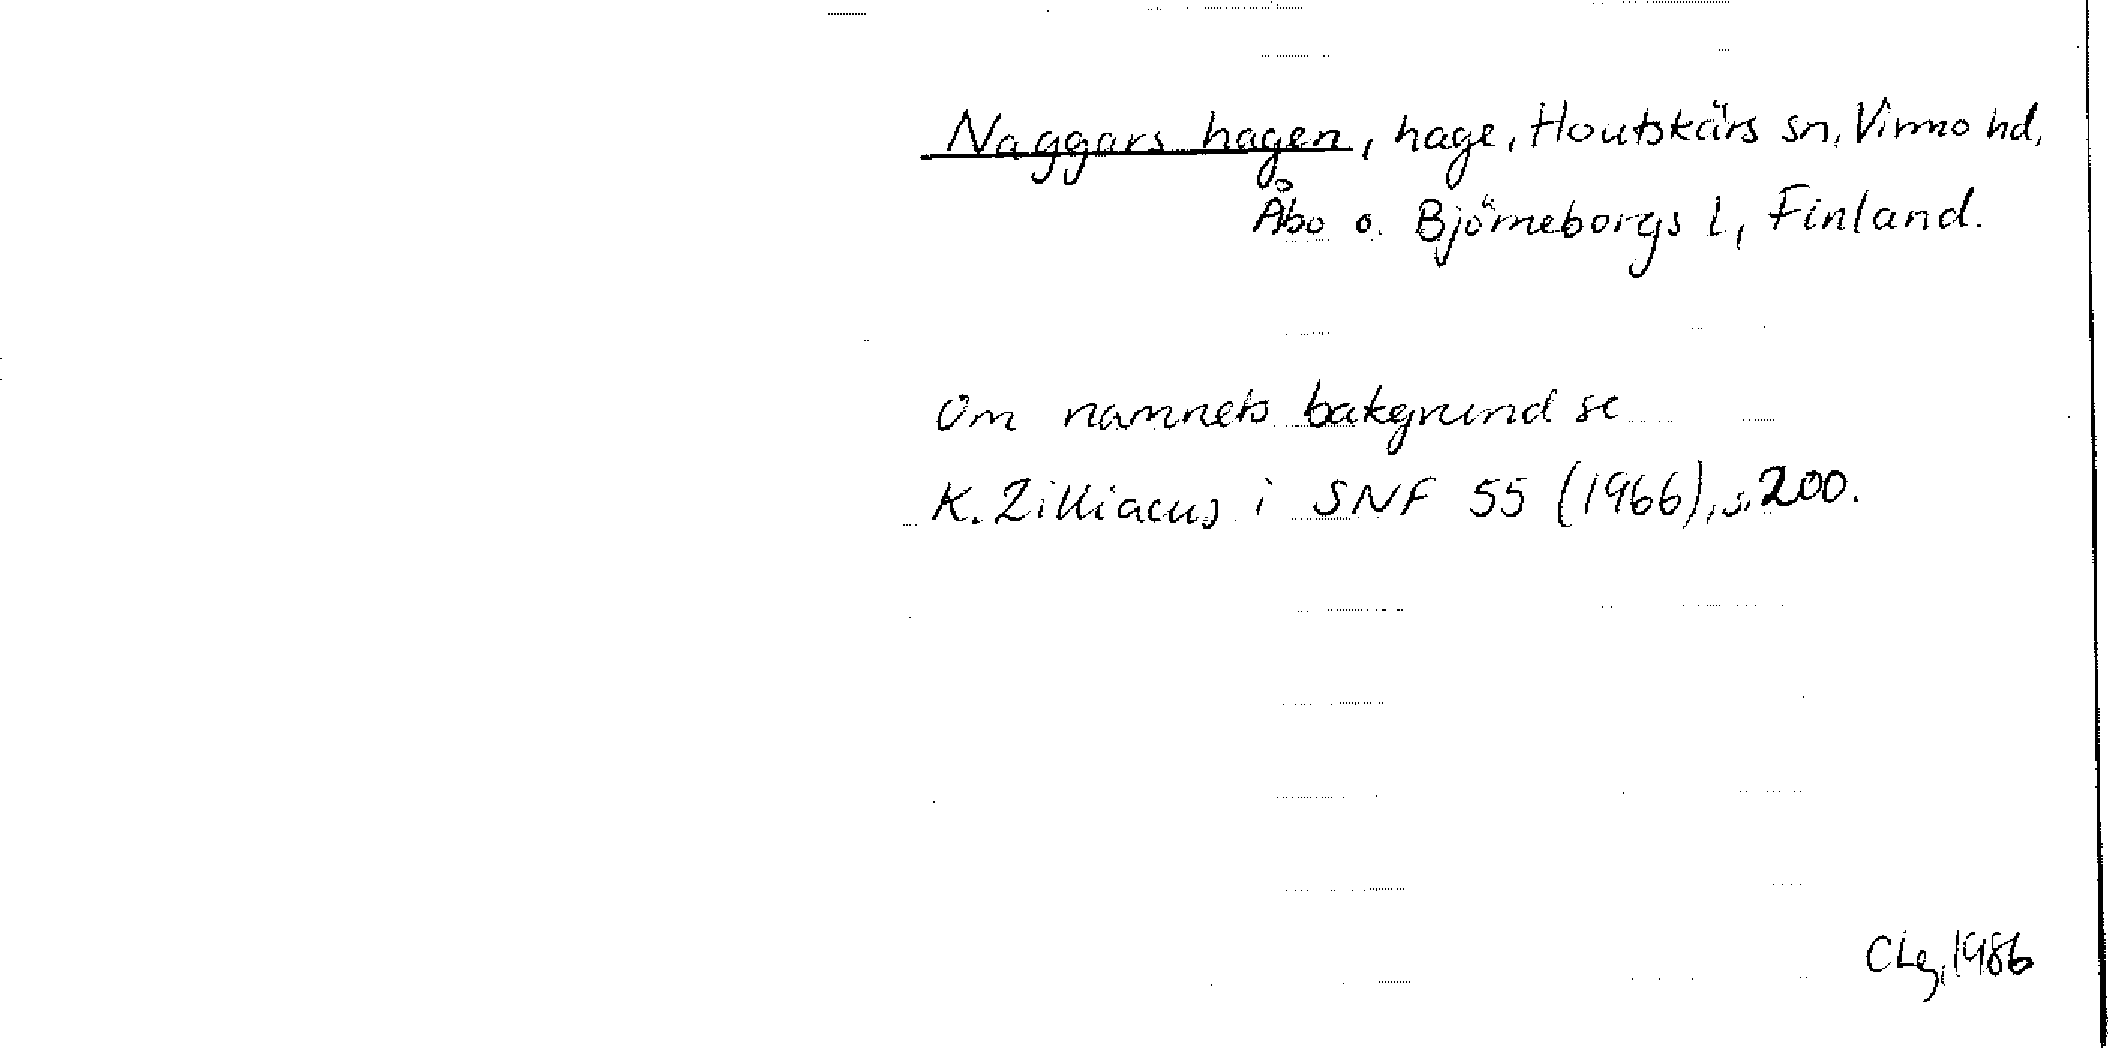 Naggars hagen, hage, Houtskärs sn, Virmo hd,
Åbo o. Björneborgs l, Finland.
Om namnets bakgrund se
K. Zilliacus i SNF 55 (1966), s. 200.
CLg, 1986